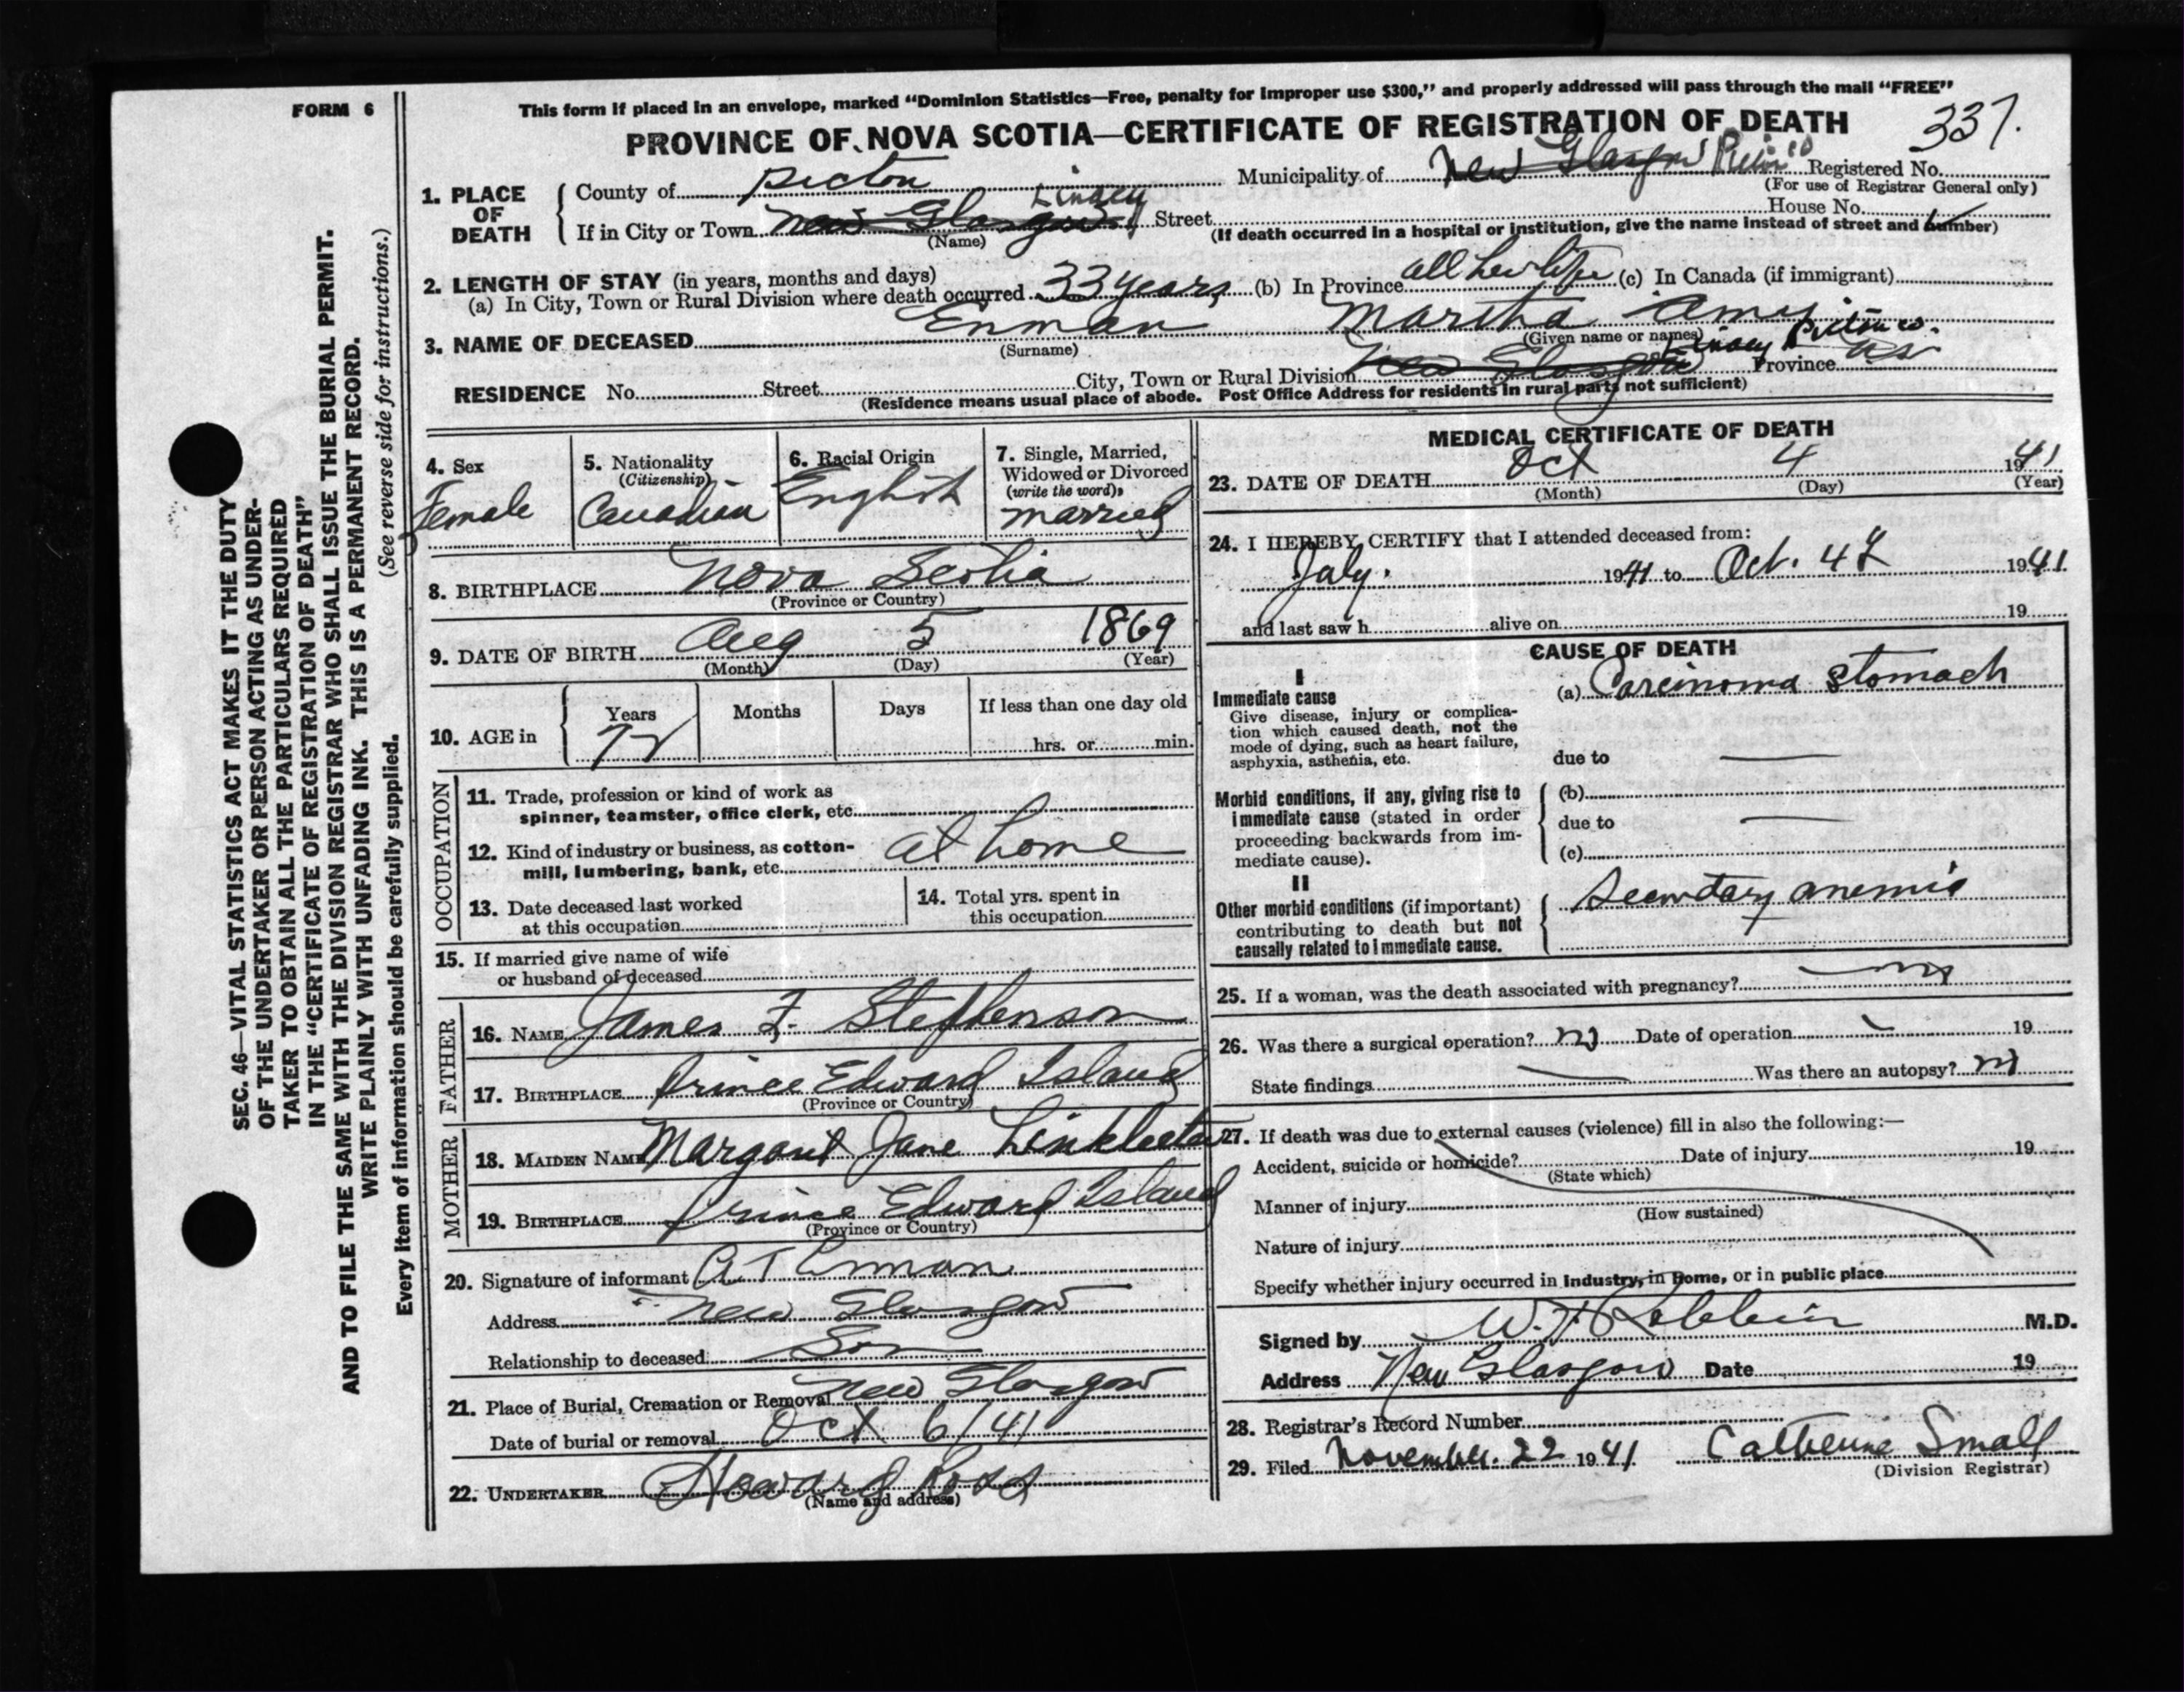 FORM 6
This form if placed in an envelope, marked "Dominion Statistics—Free, penalty for improper use $300," and properly addressed will pass through the mail "FREE"
PROVINCE OF NOVA SCOTIA—CERTIFICATE OF REGISTRATION OF DEATH
337.
1. PLACE OF DEATH
County of Pictou Municipality of New Glasgow Registered No.
(For use of Registrar General only)
House No.
If in City or Town New Glasgow Street
(Name) (If death occurred in a hospital or institution, give the name instead of street and number)
2. LENGTH OF STAY (in years, months and days)
(a) In City, Town or Rural Division where death occurred 33 years (b) In Province all her life (c) In Canada (if immigrant)
3. NAME OF DECEASED Enman Martha Amy
(Surname) (Given name or names)
Pictou co.
RESIDENCE No. Street City, Town or Rural Division New Glasgow Province NS
(Residence means usual place of abode. Post Office Address for residents in rural parts not sufficient)
4. Sex
Female
5. Nationality
(Citizenship)
Canadian
6. Racial Origin
English
7. Single, Married,
Widowed or Divorced
(write the word)
married
8. BIRTHPLACE Nova Scotia
(Province or Country)
9. DATE OF BIRTH Aug 5 1869
(Month) (Day) (Year)
10. AGE in
Years Months Days If less than one day old
72 hrs. or min.
OCCUPATION
11. Trade, profession or kind of work as
spinner, teamster, office clerk, etc.
12. Kind of industry or business, as cotton-
mill, lumbering, bank, etc. at home
13. Date deceased last worked
at this occupation
14. Total yrs. spent in
this occupation
15. If married give name of wife
or husband of deceased
FATHER
16. NAME James F. Stephenson
17. BIRTHPLACE Prince Edward Island
(Province or Country)
MOTHER
18. MAIDEN NAME Margaret Jane Linkletter
19. BIRTHPLACE Prince Edward Island
(Province or Country)
20. Signature of informant A T Enman
Address New Glasgow
Relationship to deceased Son
21. Place of Burial, Cremation or Removal New Glasgow
Date of burial or removal Oct 6/41
22. UNDERTAKER Howard Ross
(Name and address)
MEDICAL CERTIFICATE OF DEATH
23. DATE OF DEATH Oct 4 1941
(Month) (Day) (Year)
24. I HEREBY CERTIFY that I attended deceased from:
July. 1941 to Oct. 4 1941
and last saw h alive on 19
CAUSE OF DEATH
I
Immediate cause
Give disease, injury or complica-
tion which caused death, not the
mode of dying, such as heart failure,
asphyxia, asthenia, etc.
(a) Carcinoma stomach
due to —
Morbid conditions, if any, giving rise to
immediate cause (stated in order
proceeding backwards from im-
mediate cause).
(b)
due to —
(c)
II
Other morbid conditions (if important)
contributing to death but not
causally related to immediate cause.
Secondary anemia
25. If a woman, was the death associated with pregnancy? no
26. Was there a surgical operation? no Date of operation 19
State findings — Was there an autopsy? no
27. If death was due to external causes (violence) fill in also the following:—
Accident, suicide or homicide? Date of injury 19
(State which)
Manner of injury
(How sustained)
Nature of injury
Specify whether injury occurred in Industry, in Home, or in public place
Signed by M.D.
Address New Glasgow Date 19
28. Registrar's Record Number
29. Filed November. 22 1941. Catherine Small
(Division Registrar)
SEC. 46—VITAL STATISTICS ACT MAKES IT THE DUTY
OF THE UNDERTAKER OR PERSON ACTING AS UNDER-
TAKER TO OBTAIN ALL THE PARTICULARS REQUIRED
IN THE "CERTIFICATE OF REGISTRATION OF DEATH"
AND TO FILE THE SAME WITH THE DIVISION REGISTRAR WHO SHALL ISSUE THE BURIAL PERMIT.
WRITE PLAINLY WITH UNFADING INK. THIS IS A PERMANENT RECORD.
(See reverse side for instructions.)
Every item of information should be carefully supplied.